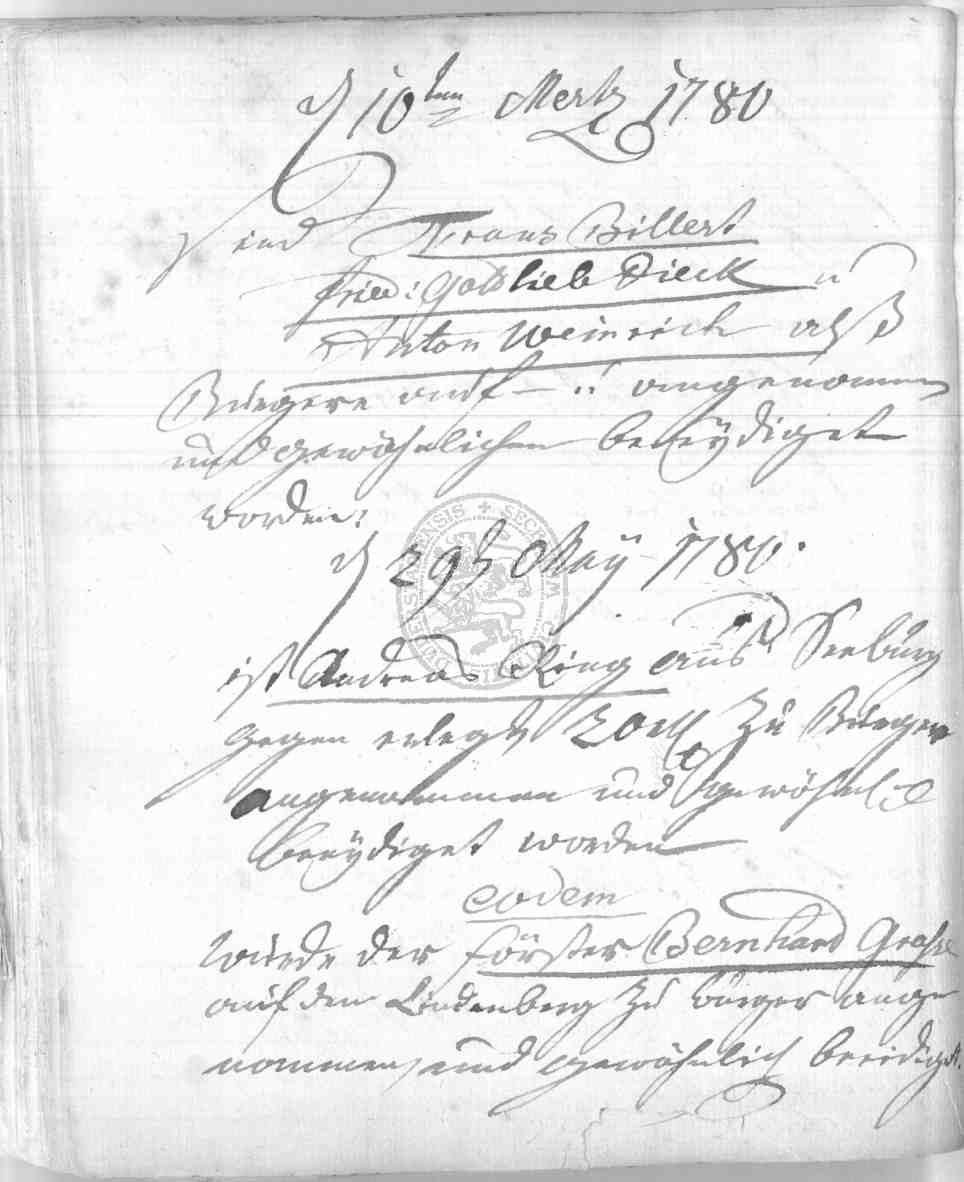 d 10ten Mertz 1780
sind Frantz Billert
Fried: Gottlieb Dieck u
Anton Weinrich alß
Bürgere auf- u angenommen
und gewöhnlichen beeydiget
worden.
d 29t May 1780.
ist Andreas Ring aus Seeburg
gegen erlegte 20 zu Bürger
angenommen und gewöhnl:
beeydiget worden
eodem
wurde der Förster Bernhard Grohse
auf den Lindenberg zu bürger ange
nommen, und gewöhnlich beeidiget.